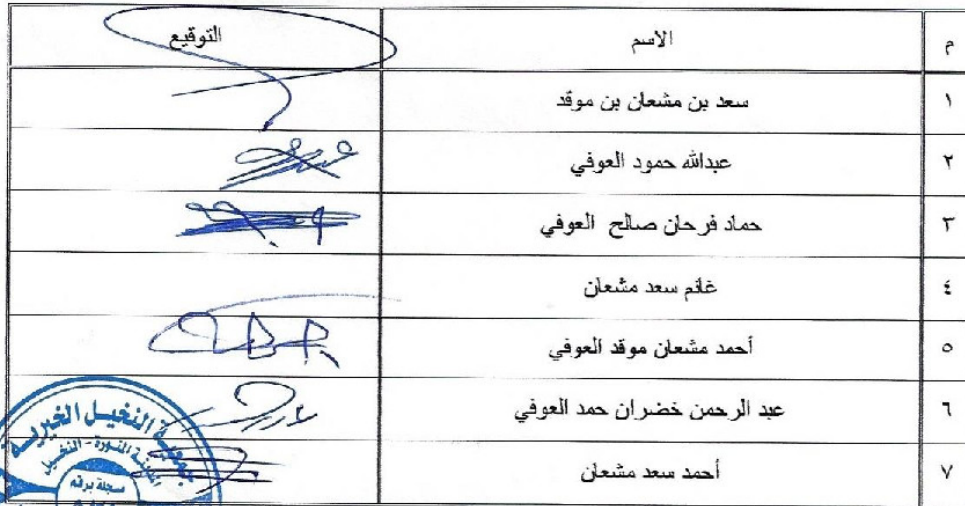 م الاسم التوقيع
١ سعد بن مشعان بن موقد
٢ عبدالله حمود العوفي
٣ حماد فرحان صالح العوفي
٤ غانم سعد مشعان
٥ أحمد مشعان موقد العوفي
٦ عبد الرحمن خضران حمد العوفي
٧ أحمد سعد مشعان
جمعية النخيل الخيرية
المدينة المنورة - النخيل
مسجلة برقم